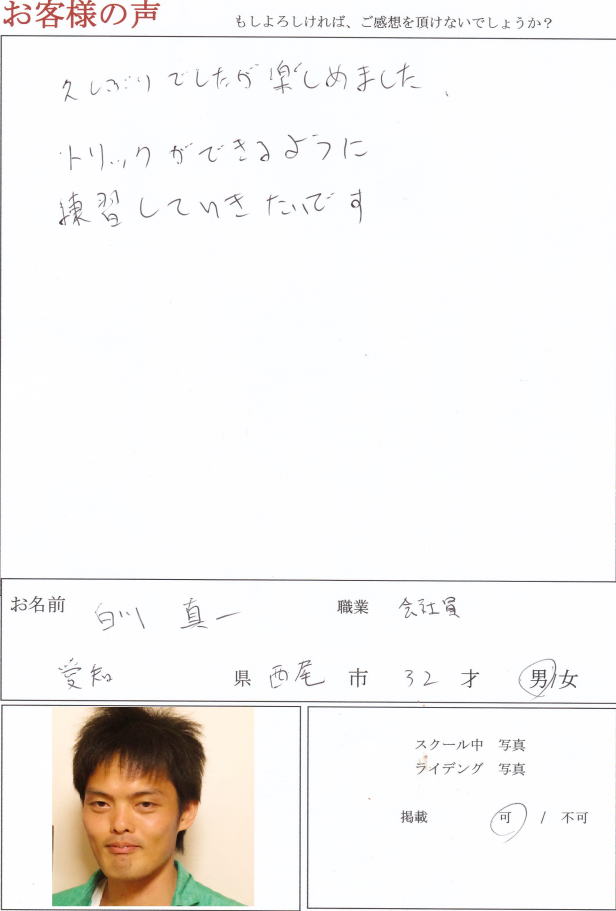 お客様の声 もしよろしければ、ご感想を頂けないでしょうか？
久しぶりでしたが楽しめました、
トリックができるように
練習していきたいです
お名前 白川 真一 職業 会社員
愛知 県 西尾 市 32 才 男/女
スクール中 写真
ライデング 写真
掲載 可 / 不可